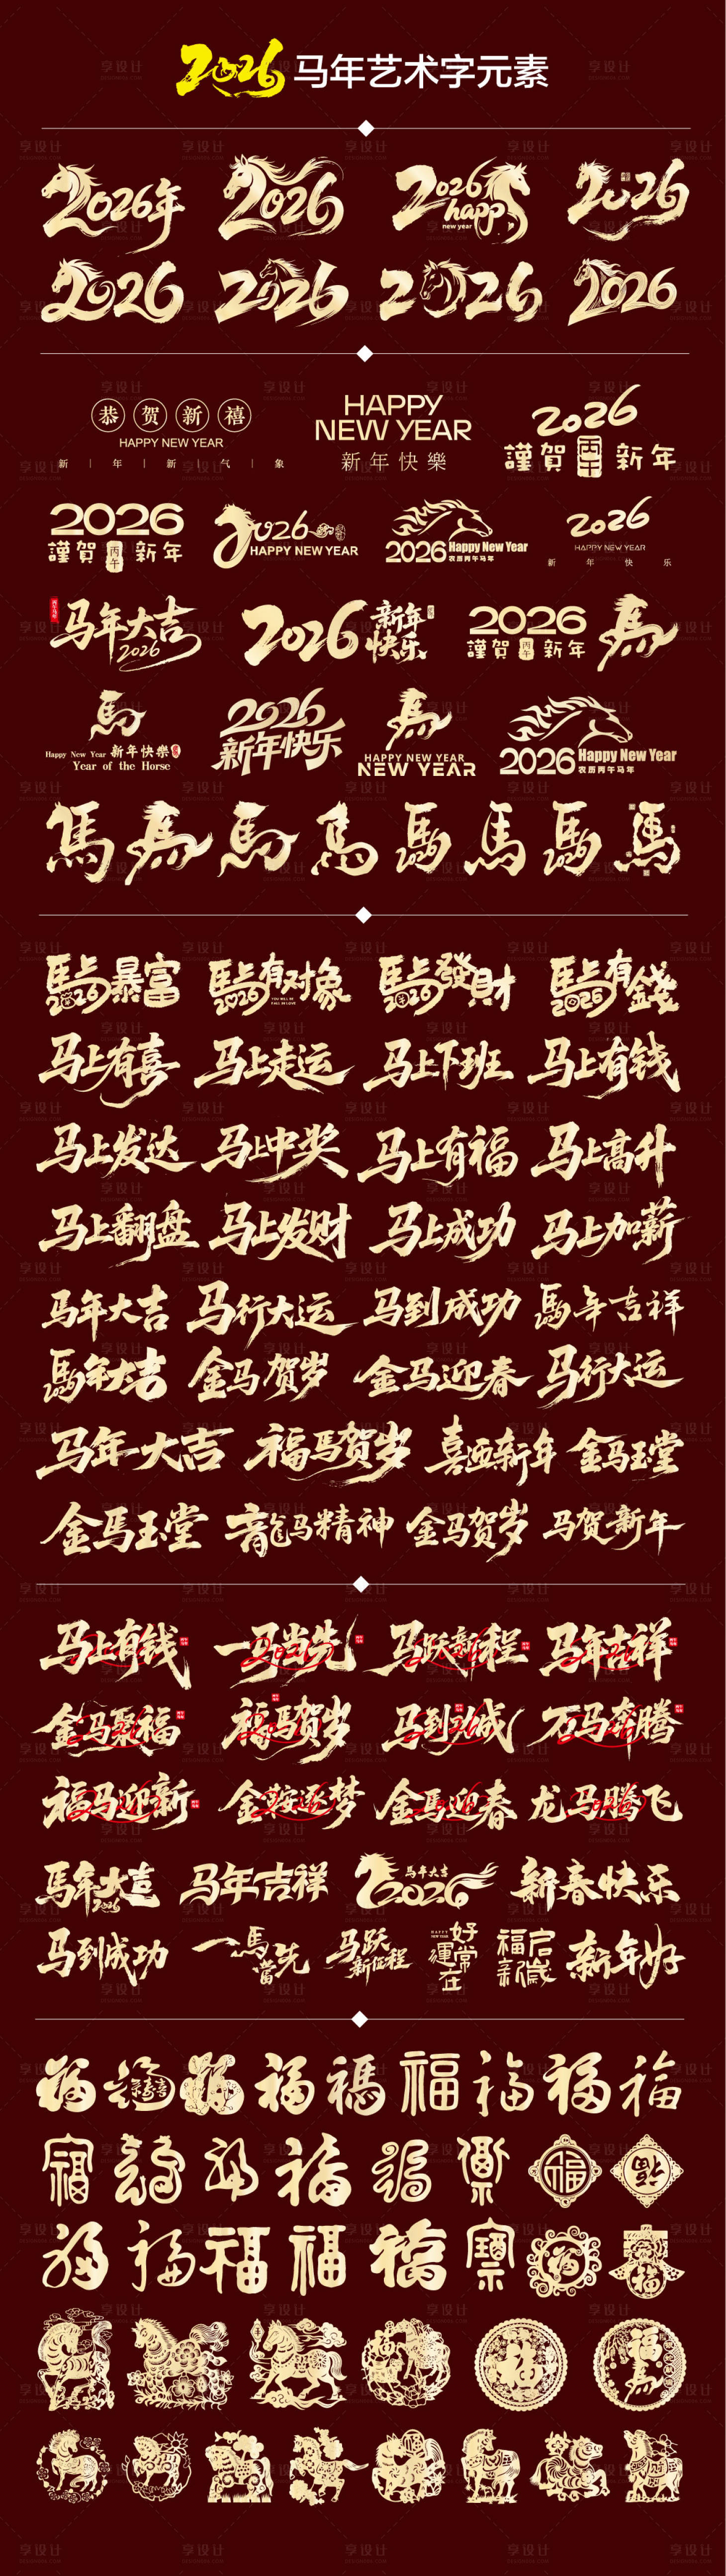 2026 马年艺术字元素
2026年 2026 2026 happy new year 2026
2026 2026 2026 2026
恭贺新禧
HAPPY NEW YEAR
新 | 年 | 新 | 气 | 象
HAPPY
NEW YEAR
新年快樂
2026
謹賀 丙午 新年
2026
謹賀 丙午 新年
2026
HAPPY NEW YEAR
2026 Happy New Year
农历丙午马年
2026
HAPPY NEW YEAR
新 年 快 乐
马年大吉
2026
2026 新年快乐
2026
謹賀 丙午 新年
馬
馬
Happy New Year 新年快樂
Year of the Horse
2026
新年快乐
馬
HAPPY NEW YEAR
NEW YEAR
2026 Happy New Year
农历丙午马年
馬 馬 馬 馬 馬2026 馬 馬2026 馬
馬上暴富 2026 馬上有对象 2026 YOU WILL BE FALL IN LOVE 馬上發財 2026 馬上有錢 2026
马上有喜 马上走运 马上下班 马上有钱
马上发达 马上中奖 马上有福 马上高升
马上翻盘 马上发财 马上成功 马上加薪
马年大吉 马行大运 马到成功 馬年吉祥
馬年大吉 2026 金马贺岁 金马迎春 马行大运
马年大吉 福马贺岁 喜迎新年 金马玉堂
金馬玉堂 龍马精神 金马贺岁 马贺新年
马上有钱 一马当先 2026 马跃新程 马年吉祥
金马聚福 福马贺岁 马到成功 万马奔腾
福马迎新 金鞍逐梦 2026 金馬迎春 2026 龙马腾飞 2026
馬年大吉 2026 马年吉祥 馬年大吉 2026 新春快乐
马到成功 一馬當先 马跃新征程 HAPPY NEW YEAR 好運常在 福启新歲 新年好
福 福 福 福 福 福 福 福
福 福 福 福 福 福
福 福 福 福 福 福 福
福 福马